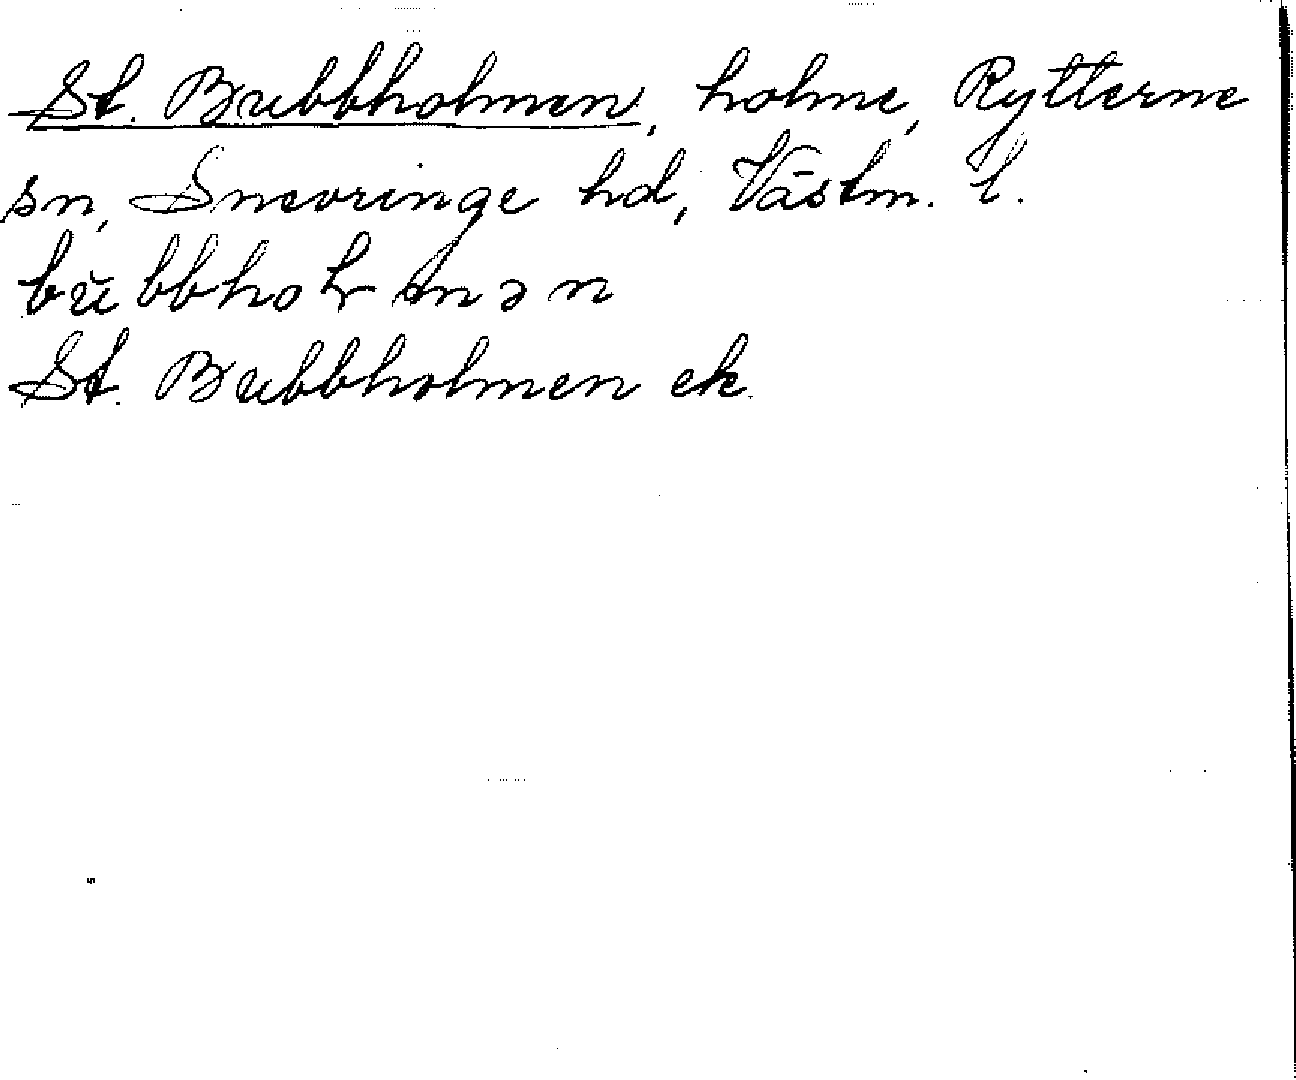 St. Bubbholmen, holme, Rytterne
sn, Snevringe hd, Västm. l.
St. Bubbholmen ek.